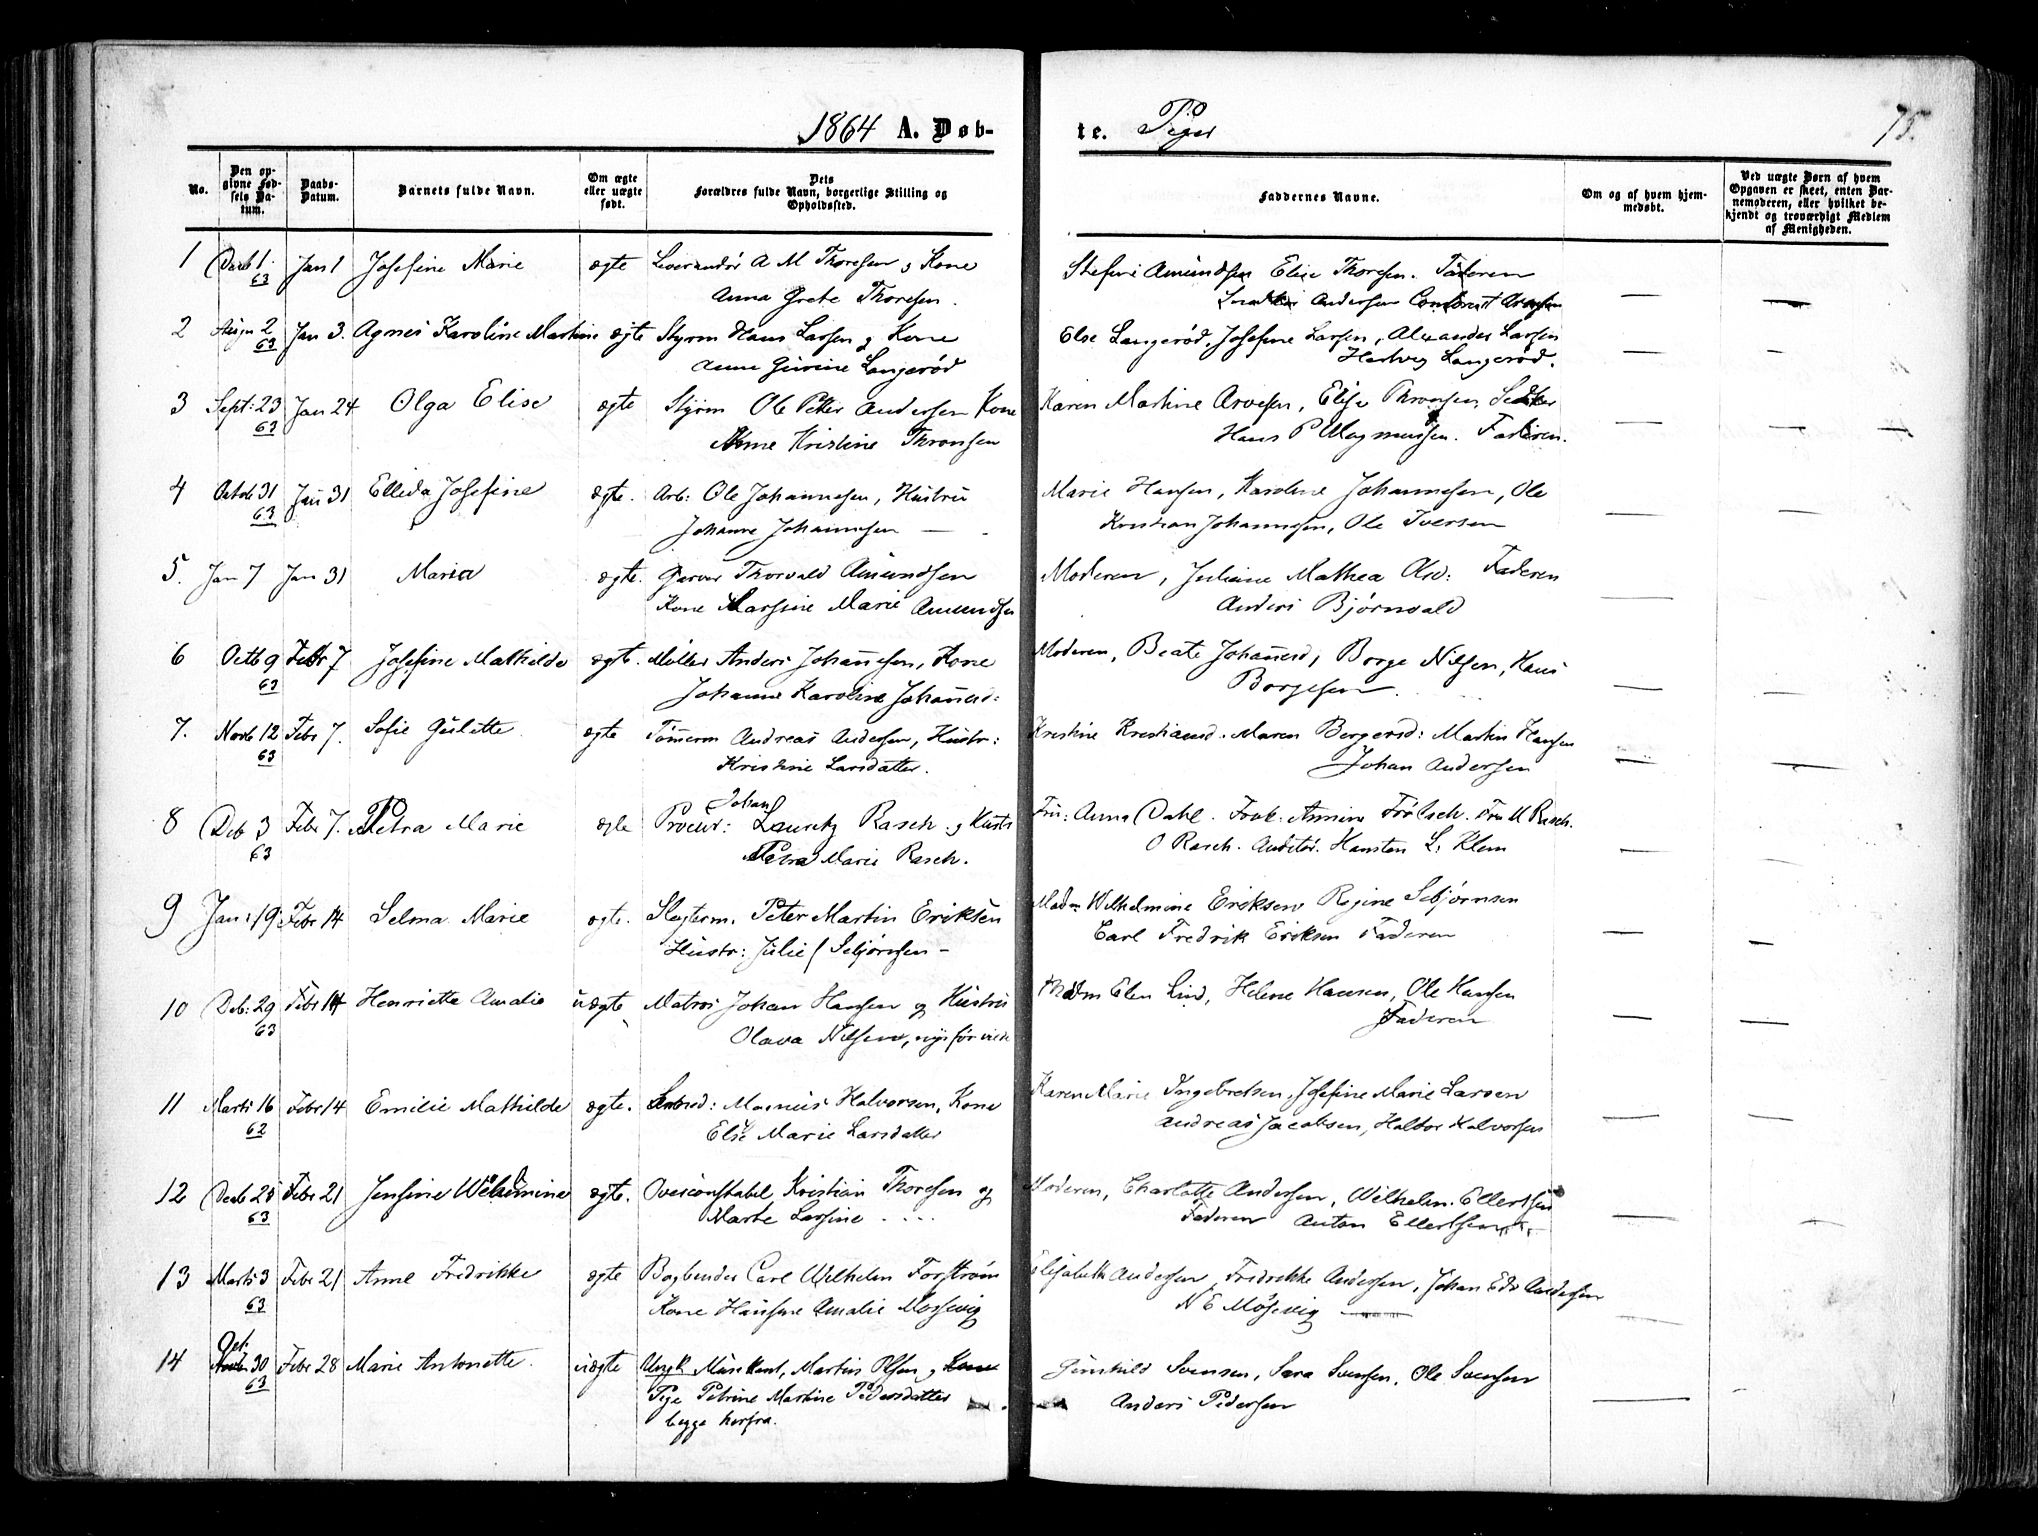 1864 A. Døb-
te. Piger
75.
No.
Den op-
givne Fød-
sels Da-
tum.
Daabs-
Datum.
Barnets fulde Navn.
Om ægte
eller uægte
født.
Dets
Forældres fulde Navn, borgerlige Stilling og
Opholdssted.
Faddernes Navne.
Om og af hvem hjem-
medøbt.
Ved uægte Børn af hvem
Opgaven er skeet, enten Bar-
nemoderen, eller hvilket be-
kjendt og troværdigt Medlem
af Menigheden.
1 Decb 1 Jan 1 Josefine Marie ægte A M Thoresen g Kone Elise Thoresen. Faderen
63 Anna Grete Thoresen. Andersen
2 Augu 2 Jan 3. Agnes Karoline Martine ægte Styrm Hans Larsen g Kone Else Langerød, Josefine Larsen, Alexander Larsen
63 Anne Langerød Hedvig Langerød.
3 Sept: 23 Jan 24 Olga Elise ægte Styrm Ole Petter Andersen Kone Karen Martine Arvesen, Elise Thronsen,
63 Anne Kristine Thronsen Hans P Magnussen. Faderen.
4 Octob 31 Jan 31 Elleda Josefine ægte. Arb: Ole Johannesen, Hustru Marie Hansen, Karoline Johannesen, Ole
63 Johanne Johannesen — Kristian Johannesen, Ole Iversen
5. Jan 7 Jan 31 Maria ægte. Garver Thorvald Amundsen Moderen, Juliane Mathea Faderen
Kone Marie Amundsen Anders Bjørnvald
6 Octb 9 Febr 7 Josefine Mathilde ægte. Møller Anders Johannesen, Kone Moderen, Beate Johannesd, Borge Nilsen, Hans
63 Johanne Karoline Johannesd: Borgesen
7. Novb 12 Febr 7. Sofie Gulette ægte Tømerm Andreas Andersen, Hustr: Kristine Kristiansd. Maren Borgersd: Martin Hansen
63 Kristine Larsdatter. Johan Andersen
Johan
8 Deb 3 Febr 7. Petra Marie ægte Procur: Lauritz Rasch g Hustr Fru: Anna Dahl. Frøk: Fru M Rasch.
63 Petra Marie Rasch. O Rasch. Auditør. Hansten L. Klem
9 Jan: 19 Febr 14 Selma Marie ægte. Slagterm. Peter Martin Eriksen Madm Wilhelmine Eriksen Regine Sebjørnsen
Hustr: Julie Sebjørnsen – Carl Fredrik Eriksen Faderen
10 Deb: 29 Febr 14 Henriette Amalie uægte Matros Johan Hansen og Hustru Madm Elen Lind, Helene Hansen, Ole Hansen
63 Olava Nilsen, Faderen
11 Marts 16 Febr 14 Emilie Mathilde ægte. Magnus Halvorsen, Kone Karen Marie Ingebretsen, Josefine Marie Larsen
62 Else Marie Larsdatter Andreas Jacobsen, Halvorsen
12 Decb 25 Febr 21 Jensine Wilhelmine ægte. Overconstabel Kristian Thoresen og Moderen, Charlotte Andersen, Wilhelm Ellertsen
63 Marte Larsine Faderen Anton Ellertsen
13 Marts 3 Febr 21 Anne Fredrikke ægte Bogbinder Carl Wilhelm Forstrøm Elisabeth Andersen, Fredrikke Andersen, Johan Edv Andersen
63 Kone Hansine Amalie Mossevig N E Mossevig
Oct:
14 30 Febr 28 Marie Antonette. uægte Ungk Musikant, Martin Olsen g Kone Gunhild Svensen, Sara Svensen, Ole Svensen
63 Pige Petrine Martine Pedersdatter Anders Pedersen
begge herfra.